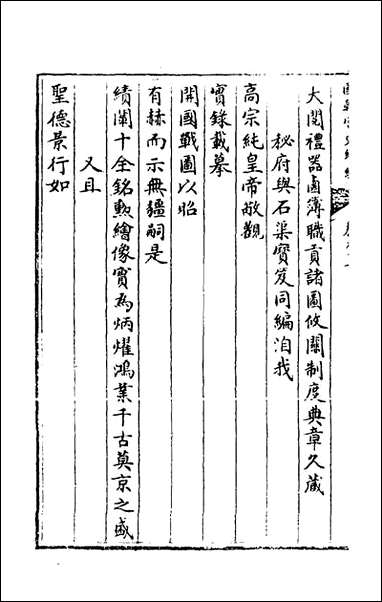 大閱禮器鹵簿職貢諸圖攸關制度典章久藏
秘府與石渠寶笈同編洎我
高宗純皇帝敬觀
實錄載摹
開國戰圖以昭
有赫而示無疆嗣是
績闡十全銘勲繪像實為炳燿鴻業千古莫京之盛
又且
聖德景行如